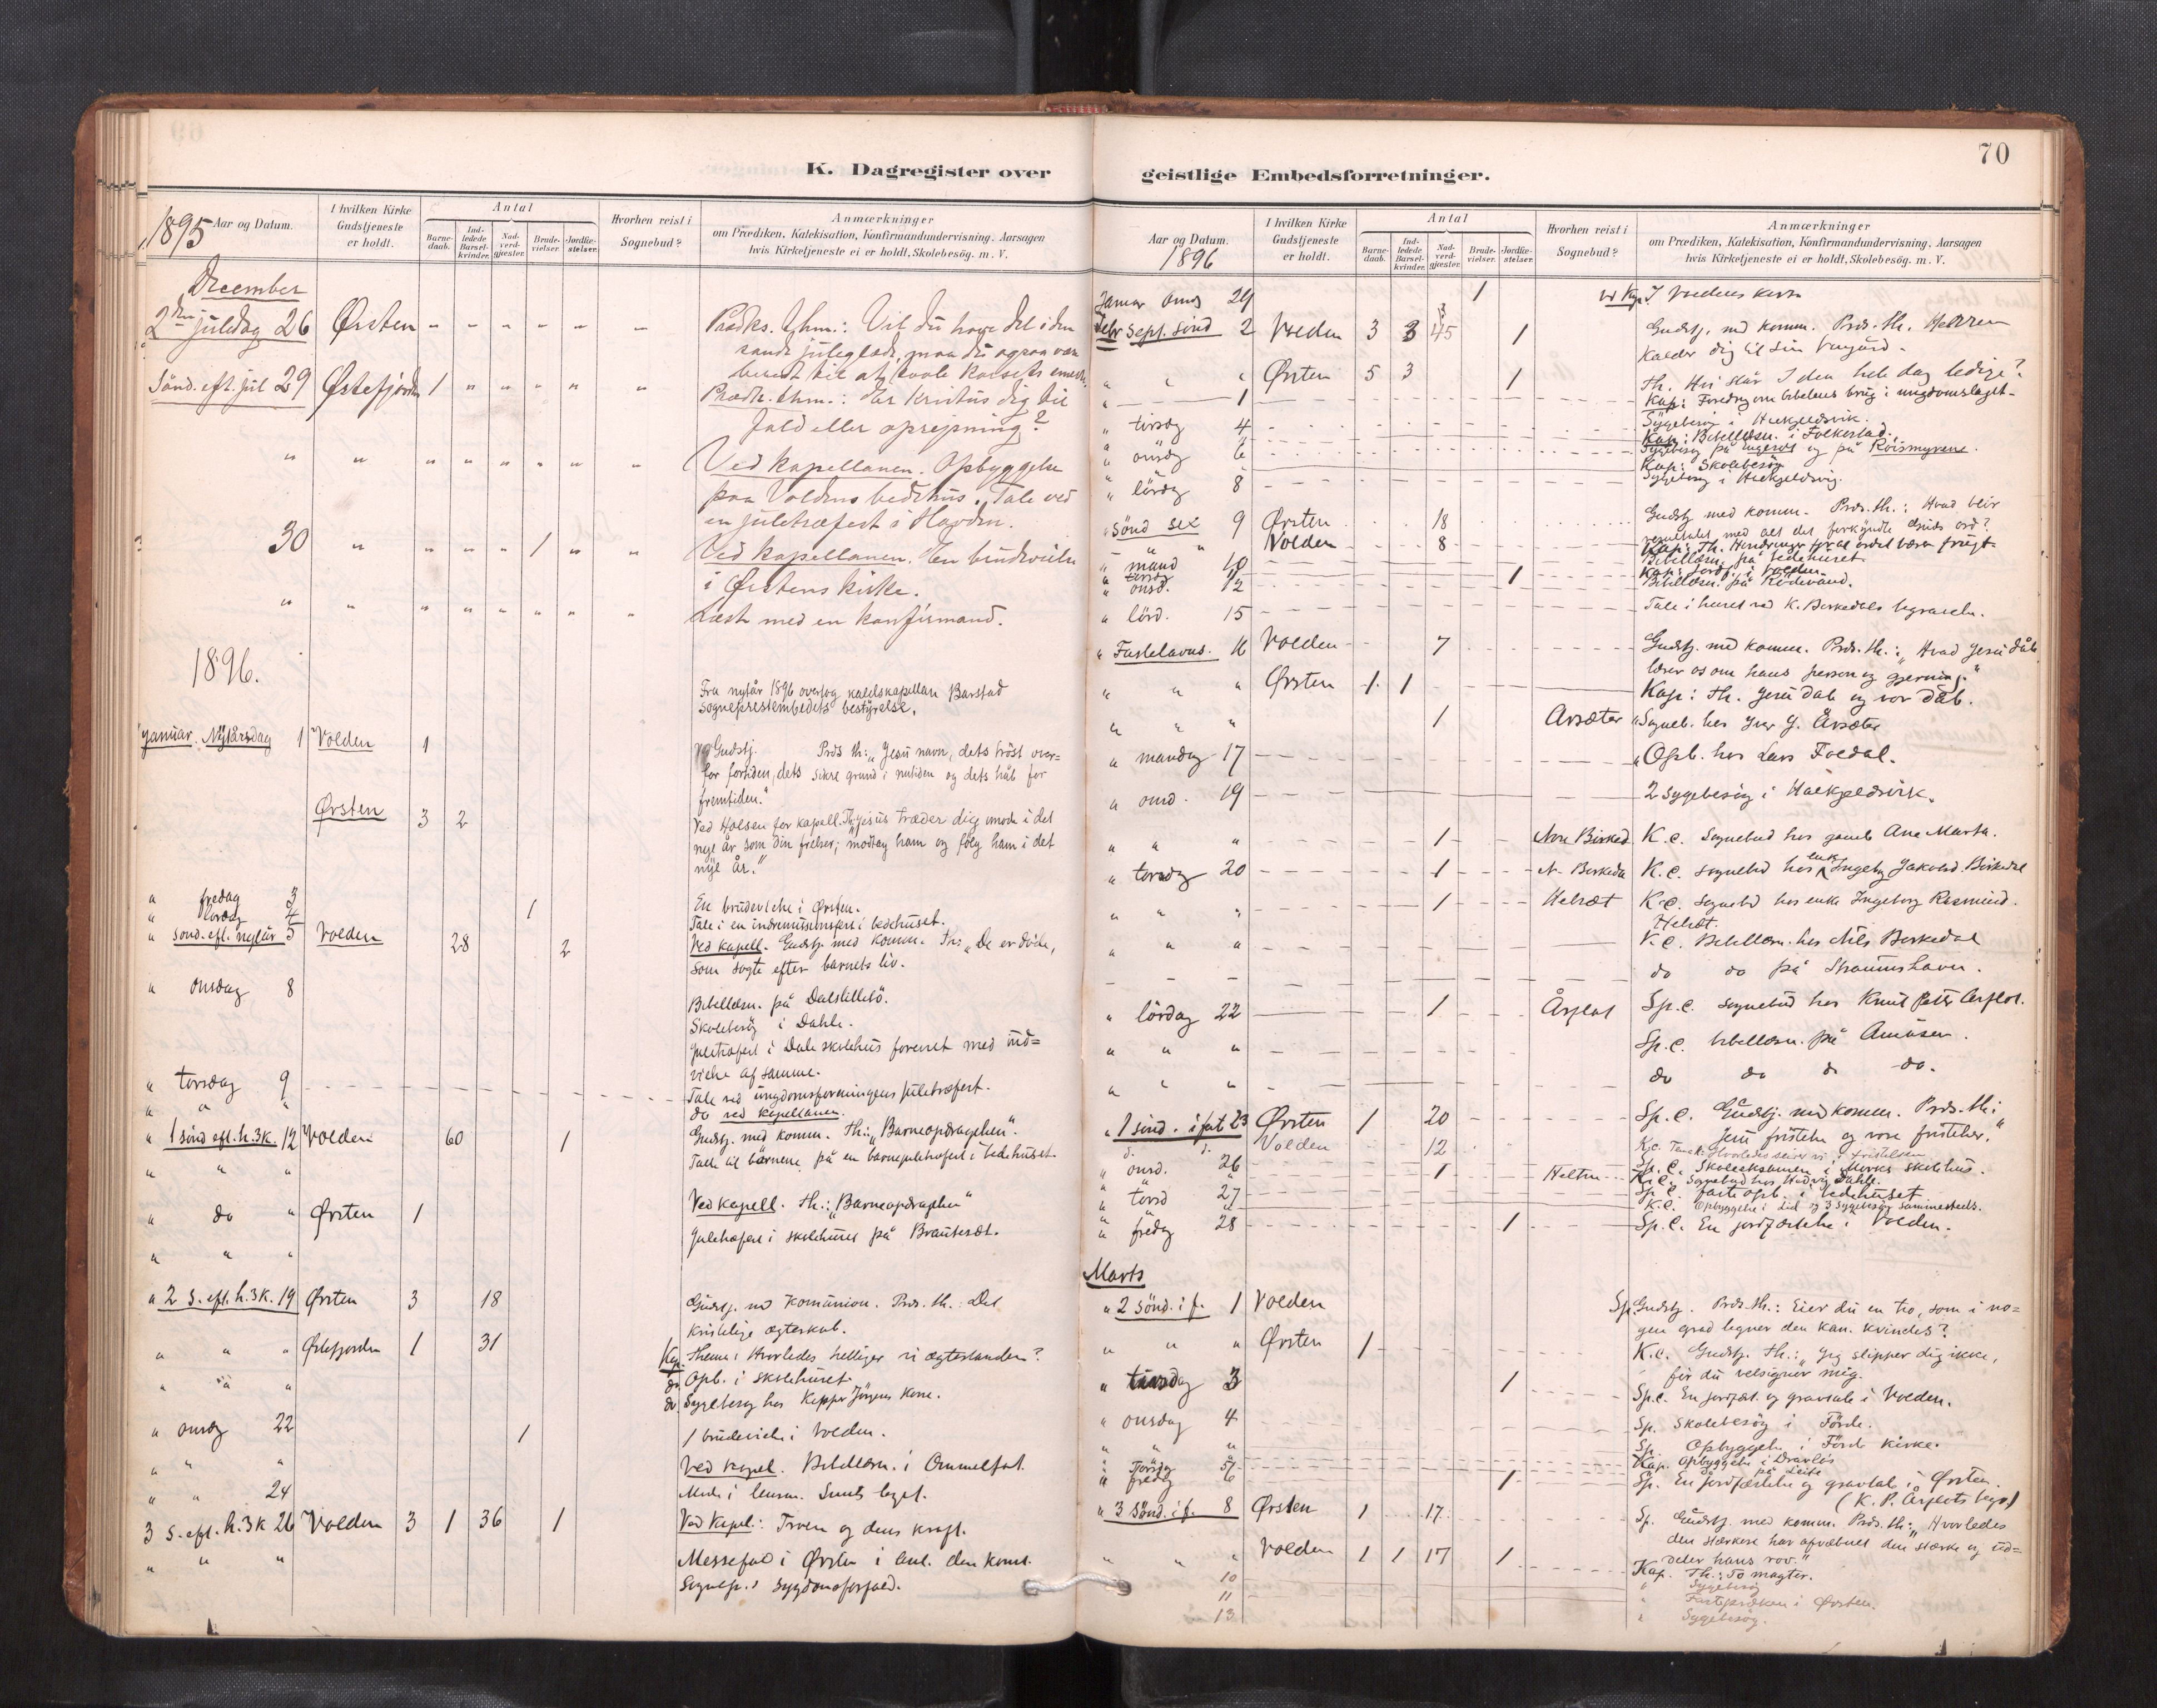 K. Dagregister over
1895 Aar og Datum.
I hvilken Kirke Gudstjeneste er holdt.
Antal
Barnedaab.
Indledede Barselkvinder.
Nadverdgjæster.
Brudevielser.
Jordfæstelser.
Hvorhen reist i Sognebud?
Anmærkninger
om Prædiken, Katekisation, Konfirmandundervisning. Aarsagen
hvis Kirketjeneste ei er holdt, Skolebesøg. m. V.
December
2den juledag 26 Ørsten " " " " " " Prædks. thm.: Vil du have del i den
sande juleglæde, maa du ogsaa være
beredt til at taale korsets
Sönd. eft. jul 29 Østefjorden 1 " " " " " Prædk. thm.: Er Kristus dig til
fald eller opreisning?
" " " " " " " " Ved kapellanen. Opbyggelse
paa Voldens bedehus. Tale ved
en juletræfest i Hovden.
30 " " " " 1 " " Ved kapellanen. En brudevielse
i Ørstens kirke.
" " " " " " " " Læst med en konfirmand.
1896.
Fra nytår 1896 overtog kaldskapellan Barstad
sogneprestembedets bestyrelse.
Januar. Nytårsdag 1 Volden 1
Gudstj. Præds th: "Jesu navn, dets tröst over-
for fortiden, dets sikre grund i nutiden og dets håb for
fremtiden."
Ørsten 3 2 Ved Holsen for kapell. Th: "Jesus træder dig imöde i det
nye år som din frelser; modtag ham og fölg ham i det
nye år."
" fredag 3 1 En brudevielse i Ørsten.
" lördag 4 Tale i en indremissionsfest i bedehuset.
" sönd. eft. nytår 5 Volden 28 2 Ved kapell. Gudstj. med komm. Th: "De er döde,
som sögte efter barnets liv.
" Onsdag 8 Bibellæsn. på
Skolebesög i Dahle.
Juletræfest i Dale skolehus forenet med ind-
vielse af samme.
" torsdag 9 Tale ved ungdomsforeningens juletræfest.
" " " do ved kapellanen.
" 1 sönd eft. h. 3 K. 12 Volden 60 1 Gudstj. med komm. Th: "Barneopdragelsen".
" " " Tale til börnene på en barnejuletræfest i bedehuset.
" do " Ørsten 1 Ved kapell. Th.: "Barneopdragelsen"
" " " Juletræfest i skolehuset på Brautesæt.
" 2 S. eft. h. 3 K. 19 Ørsten 3 18 Gudstj. med kommunion. Præds. th.: Det
kristelige ægteskab.
" " " Østefjorden 1 31 Kap. Thema: Hvorledes helliger vi ægtestanden?
" " " do. Opb. i skolehuset.
do. Sygebesög hos
" onsdg 22 1 1 brudevielse i Volden.
" " " Ved kapel. Bibellæsn. i
" " 24
3 S. eft. h. 3 K 26 Volden 3 1 36 1 Ved Kapel.: Troen og dens kraft.
" " " Messefald i Ørsten i anl. den konst.
Sognepr.s sygdomsforfald.
70
geistlige Embedsforretninger.
Aar og Datum. 1896
I hvilken Kirke Gudstjeneste er holdt.
Antal
Barnedaab.
Indledede Barselkvinder.
Nadverdgjæster.
Brudevielser.
Jordfæstelser.
Hvorhen reist i Sognebud?
Anmærkninger
om Prædiken, Katekisation, Konfirmandundervisning. Aarsagen
hvis Kirketjeneste ei er holdt, Skolebesøg. m. V.
Januar onsd 29 1 I Voldens kirke
Febr Sept. sönd 2 Volden 3 3 45 1 Gudstj. med komm. Præds. th. Herren
kalder dig til sin vingård.
" " " Ørsten 5 3 1 Th. Hvi står I den hele dag ledige?
Kap: Foredrag om bibelens brug i ungdomslaget.
" tirsdg 4 Sygebesög i Hækjeldsvik.
Kap: Bibellæsn. i Folkestad.
" onsdg Sygebesög på og på Röismyrene.
Kap: Skolebesög
" lördg 8 Sygebesög i Hækjeldsvig.
" Sönd Sex 9 Ørsten 18 Gudstj med komm. Præds. th.: Hvad blir
resultatet med alt det forkyndte Guds ord?
" " Volden 8 Kap: Th. Hindringer for at ordet bærer frugt.
" mand 10 Bibellæsn. på bedehuset.
1 Kap: Jordf. i Volden.
" onsd. 12 Bibellæsn. på Rödevand.
" lörd. 15 Tale i huset ved K. Birkedals begravelse.
" Fastelavns. 16 Volden 7 Gudstj. med komm. Præds. th.: "Hvad Jesu dåb
lærer os om hans person og gjerning."
" " " Ørsten 1 1 Kap: Th. Jesu dåb og vor dåb.
" " " 1 Årsæter " Sogneb. hos Iver J. Årsæter
" mandag 17 " Opb. hos Lars Foldal.
" onsd. 19 2 sygebesög i Hækjeldsvik.
" " " 1 Nore Birked. K.c. Sognebud hos gamle Ane Marta.
" torsdg 20 1 N. Birkeda K.c. sognebud hos enke Ingebg Jakobsd. Birkedal
" " " 1 Helsæt K.c. Sognebd hos enke Ingeborg Rasmusd.
Helsæt.
" " " K.c. Bibellæsn. hos Nils Birkedal
do do på Straumshavn.
" lördag 22 1 Årflot Sp.c. sognebud hos Knut Petter Aarflot.
" " " Sp.c. bibellæsn. på Amåsen.
" " " do do do do.
" 1 sönd. i fat 23 Ørsten 1 20 Sp.c. Gudstj. med komm. Præds. th:
"Jesu fristelse og vore fristelser."
d. d. Volden 12 K.c. Hvorledes seirer vi i fristelsen
" onsd. 26 Sp.c. Skoleeksamen i skolehus.
" " " 1 K.c. Sognebud hos Dahle.
" torsd 27 Sp.c. fasteopb. i bedehuset
" " " K.c. Opbyggelse i Lid og 3 sygebesög sammesteds.
" fredg 28 1 Sp.c. En jordfæstelse i Volden.
Marts
" 2 Sönd. i f. 1 Volden Sp. Gudstj. Præds. th.: Eier du en tro, som i no-
gen grad ligner den kan. kvindes?
" " " Ørsten 1 K.c. Gudstj. Th.: "Jeg slipper dig ikke,
för du velsigner mig.
" tirsdag 3 1 Sp.c. En jordfæst. og gravtale i Volden.
" onsdag 4 Sp. Skolebesög i Förde.
" " " Sp. Opbyggelse i Förde kirke.
" Torsdg 5 Kap. Opbyggelse i Dravlös
" fredg 6 1 Sp. En jordfæstelse og gravtale i Ørsten
(K. P. Årflots begr)
" 3 Sönd. i f. 8 Ørsten 1 17 Sp. Gudstj. med komm. Præds. th: "Hvorledes
den stærkere har afvæbnet den stærke og ud-
deler hans rov."
" " " Volden 1 1 17 1 Kap. Th.: To magter.
10 " Sygebesög
11 " Fasteprædken i Ørsten.
13 " Sygebesög.